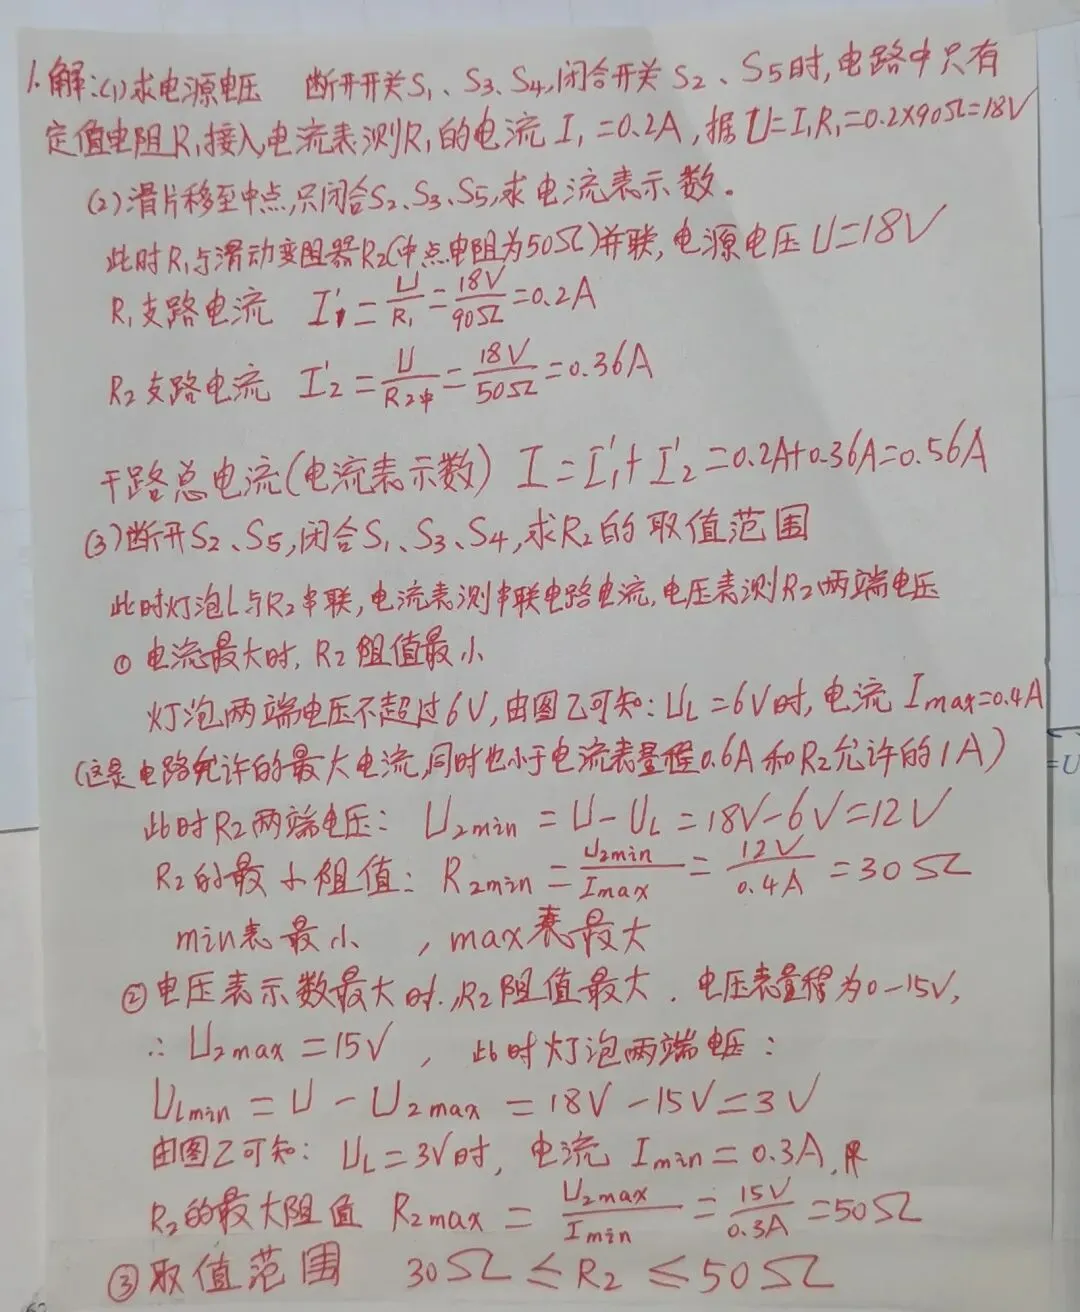 1.解:(1)求电源电压 断开开关S1、S3、S4,闭合开关S2、S5时,电路中只有
定值电阻R1接入,电流表测R1的电流I1=0.2A,据U=I1R1=0.2×90Ω=18V
(2)滑片移至中点,只闭合S2、S3、S5,求电流表示数。
此时R1与滑动变阻器R2(中点电阻为50Ω)并联,电源电压U=18V
R1支路电流 I'1=U/R1=18V/90Ω=0.2A
R2支路电流 I'2=U/R2中=18V/50Ω=0.36A
干路总电流(电流表示数) I=I'1+I'2=0.2A+0.36A=0.56A
(3)断开S2、S5,闭合S1、S3、S4,求R2的取值范围
此时灯泡L与R2串联,电流表测串联电路电流,电压表测R2两端电压
① 电流最大时,R2阻值最小
灯泡两端电压不超过6V,由图乙可知:UL=6V时,电流Imax=0.4A
(这是电路允许的最大电流,同时也小于电流表量程0.6A和R2允许的1A)
=U
此时R2两端电压: U2min=U-UL=18V-6V=12V
R2的最小阻值: R2min=U2min/Imax=12V/0.4A=30Ω
min表最小 ,max表最大
②电压表示数最大时,R2阻值最大.电压表量程为0-15V,
∴U2max=15V , 此时灯泡两端电压:
ULmin=U-U2max=18V-15V=3V
由图乙可知: UL=3V时, 电流 Imin=0.3A,
R2的最大阻值 R2max=U2max/Imin=15V/0.3A=50Ω
③取值范围 30Ω≤R2≤50Ω